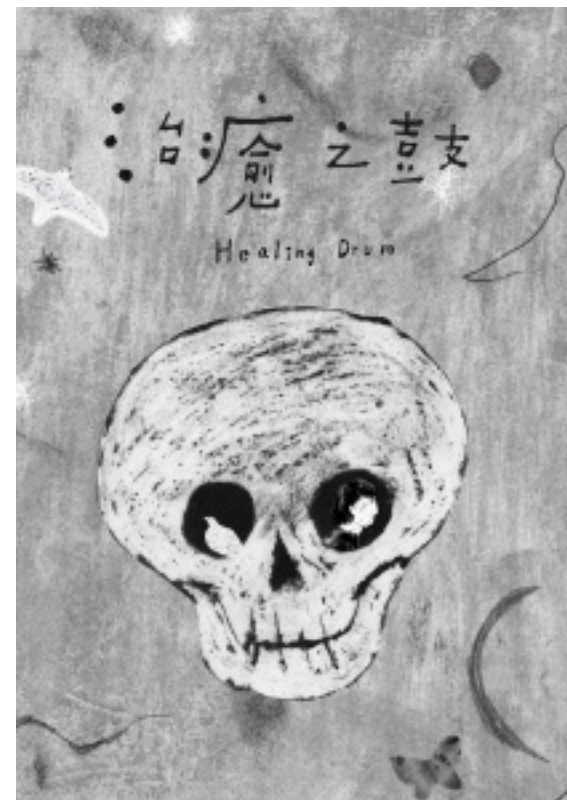 治癒之鼓
Healing Drum